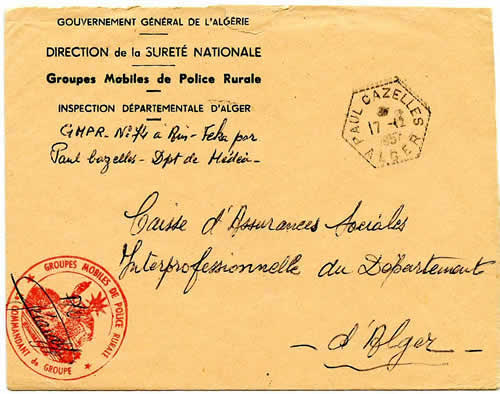 GOUVERNEMENT GÉNÉRAL DE L'ALGÉRIE
DIRECTION de la SURETÉ NATIONALE
Groupes Mobiles de Police Rurale
INSPECTION DÉPARTEMENTALE D'ALGER
GMPR - N° 74 a Ain - Feka par
Paul Cazelles - Dpt de Médéa -
PAUL CAZELLES
17 -12
ALGER
Caisse d'Assurances Sociales
Interprofessionnelle du Département
- d'Alger -
GROUPES MOBILES DE POLICE RURALE
COMMANDANT de GROUPE